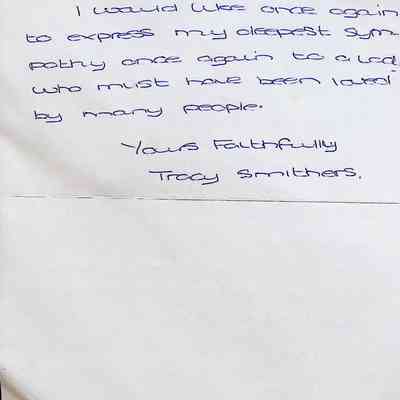 I would like once again
to express my deepest sym
pathy once again to a lad
who must have been loved
by many people.
Yours Faithfully
Tracy Smithers.